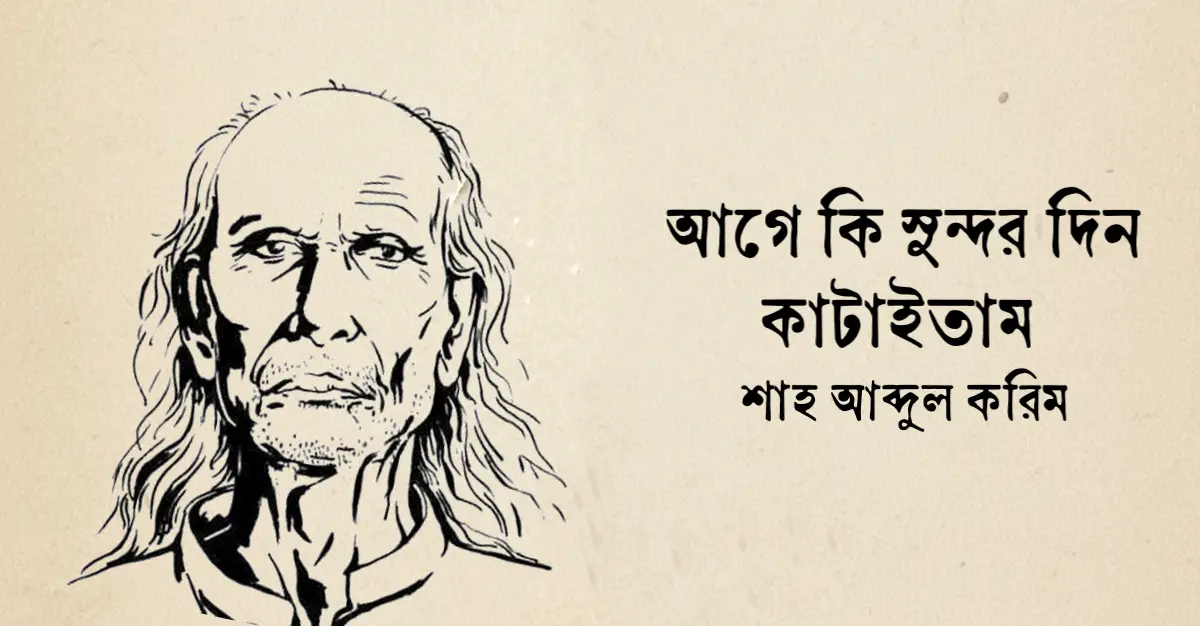 আগে কি সুন্দর দিন
কাটাইতাম
শাহ আব্দুল করিম